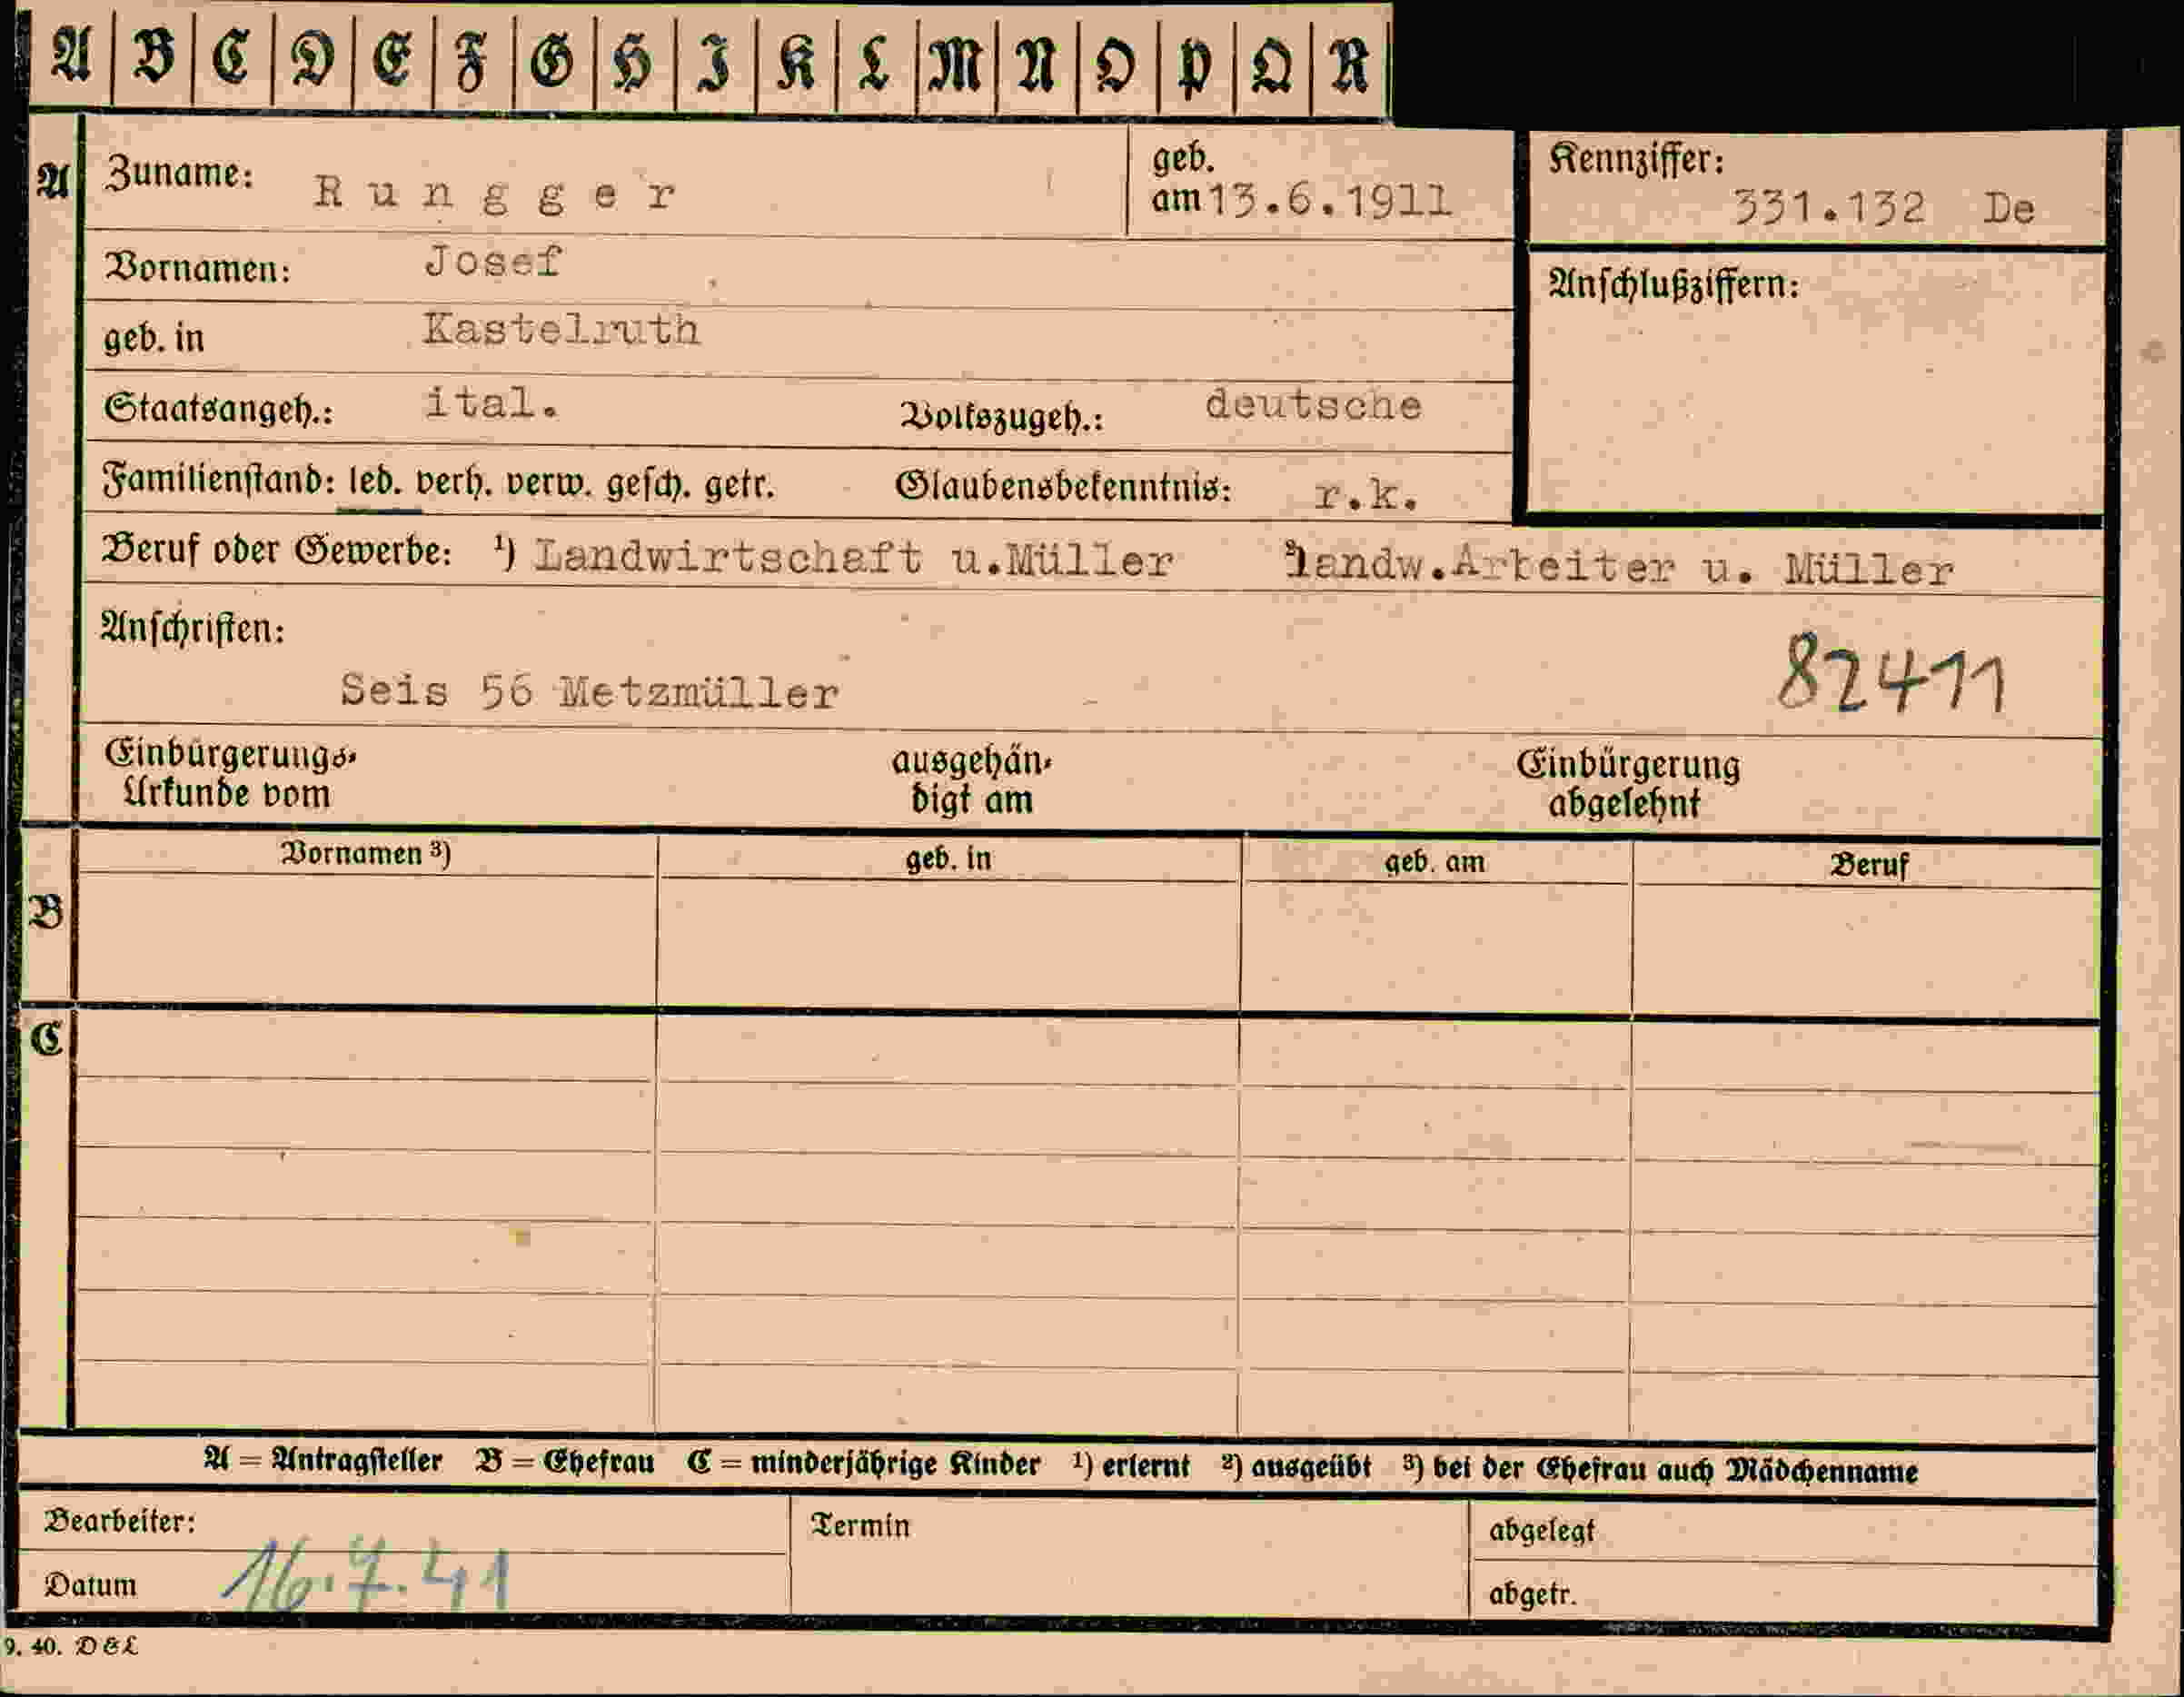 A B C D E F G H I K L M N O P Q R
A Zuname: Rungger geb. am 13.6.1911 Kennziffer: 331.132 De
Vornamen: Josef Anschlußziffern:
geb. in Kastelruth
Staatsangeh.: ital. Volkszugeh.: deutsche
Familienstand: led. verh. verw. gesch. getr. Glaubensbekenntnis: r.k.
Beruf oder Gewerbe: ¹) Landwirtschaft u.Müller ²) landw.Arbeiter u. Müller
Anschriften:
Seis 56 Metzmüller 82411
Einbürgerungs- ausgehän- Einbürgerung
Urkunde vom digt am abgelehnt
B Vornamen ³) geb. in geb. am Beruf
C
A = Antragsteller B = Ehefrau C = minderjährige Kinder ¹) erlernt ²) ausgeübt ³) bei der Ehefrau auch Mädchenname
Bearbeiter: Termin abgelegt
Datum 16.7.41 abgetr.
9. 40. D&L